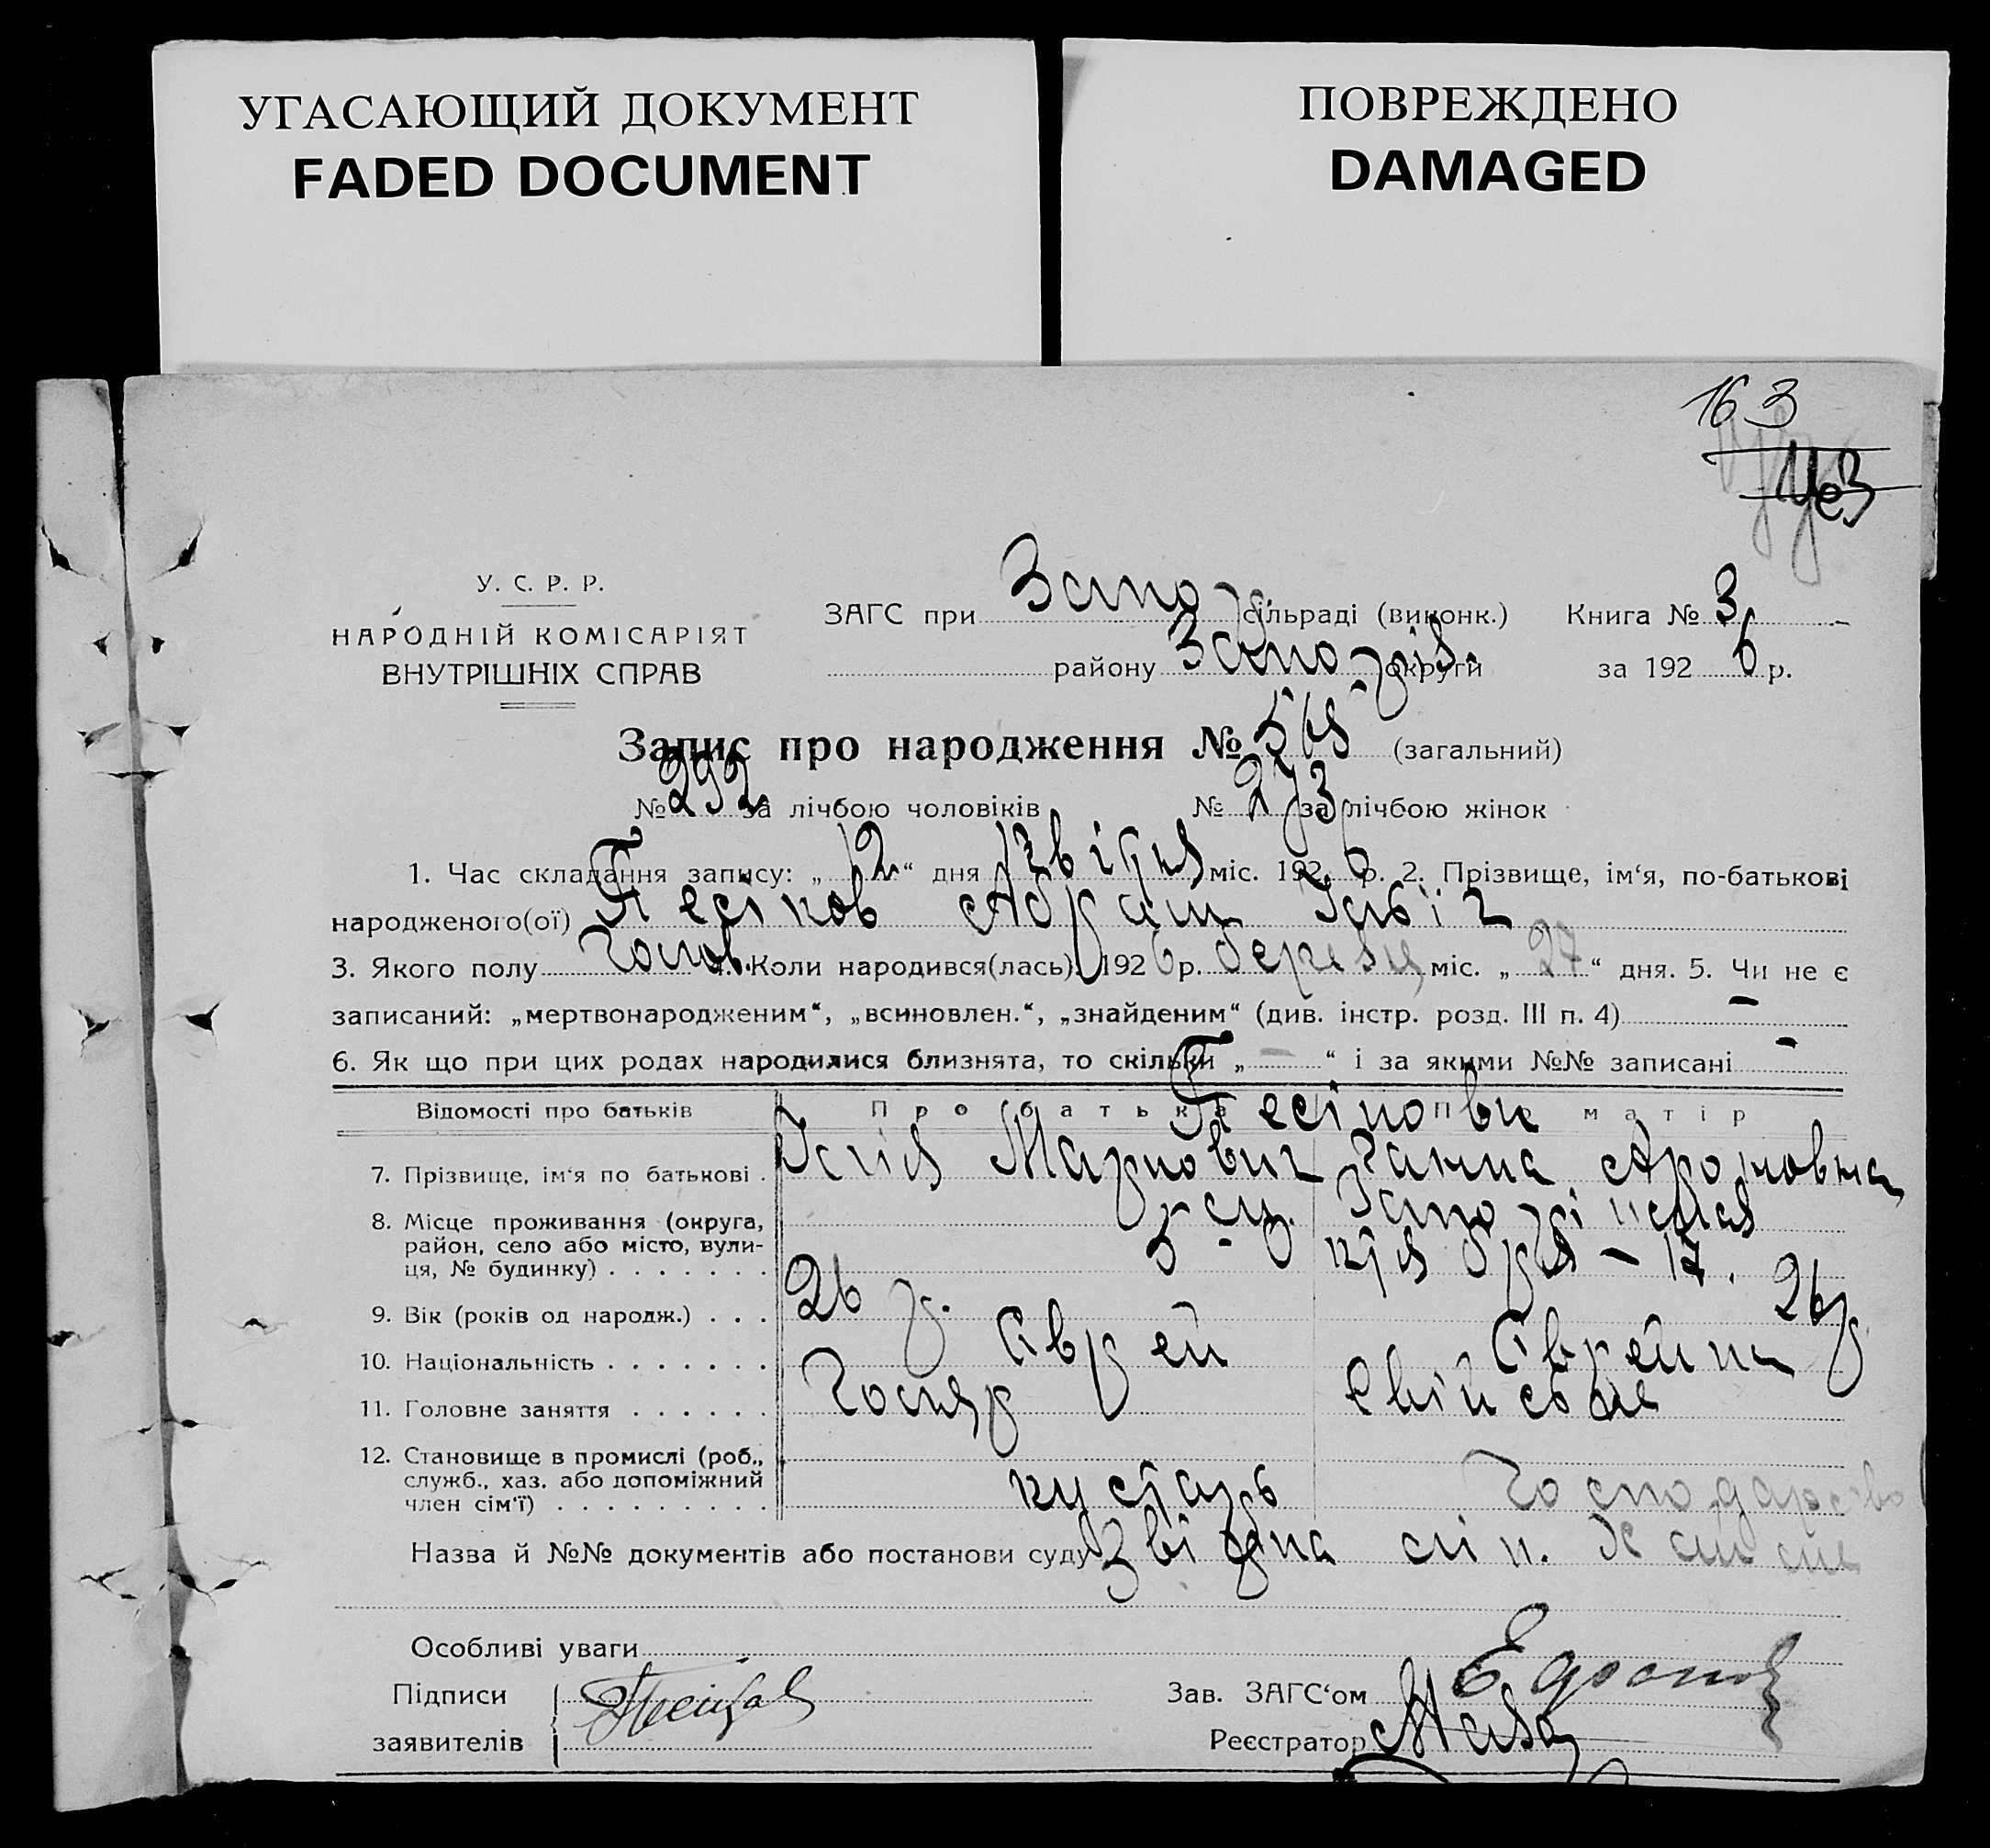 УГАСАЮЩИЙ ДОКУМЕНТ
FADED DOCUMENT
ПОВРЕЖДЕНО
DAMAGED
163
У. С. Р. Р.
НАРОДНІЙ КОМІСАРІЯТ
ВНУТРІШНІХ СПРАВ
ЗАГС при Запо сільраді (виконк.) Книга № 3
району Запоріз. округи за 1926 р.
Запис про народження № 565 (загальний)
№ 292 за лічбою чоловіків № 273 за лічбою жінок
1. Час складання запису: „12“ дня квітня міс. 1926 р. 2. Прізвище, ім‘я, по-батькові
народженого(ої) Песіков Абрам
3. Якого полу чолов. 4. Коли народився(лась) 1926 р. березц міс. „27“ дня. 5. Чи не є
записаний: „мертвонародженим“, „всиновлен.“, „знайденим“ (див. інстр. розд. III п. 4) –
6. Як що при цих родах народилися близнята, то скільки „–“ і за якими №№ записані –
Відомості про батьків Про батька Про матір
Песікови
7. Прізвище, ім‘я по батькові . Маркович Ганна Ароновна
8. Місце проживання (округа,
район, село або місто, вули-
ця, № будинку) . . . . . . . – 17.
9. Вік (років од народж.) . . . 26 р. 26 р
10. Національність . . . . . . . Єврей Єврейка
11. Головне заняття . . . . . .
12. Становище в промислі (роб.,
служб., хаз. або допоміжний
член сім‘ї) . . . . . . . . . . кустарь Господарство
Назва й №№ документів або постанови суду
Особливі уваги
Підписи
заявителів
Зав. ЗАГС‘ом
Реєстратор